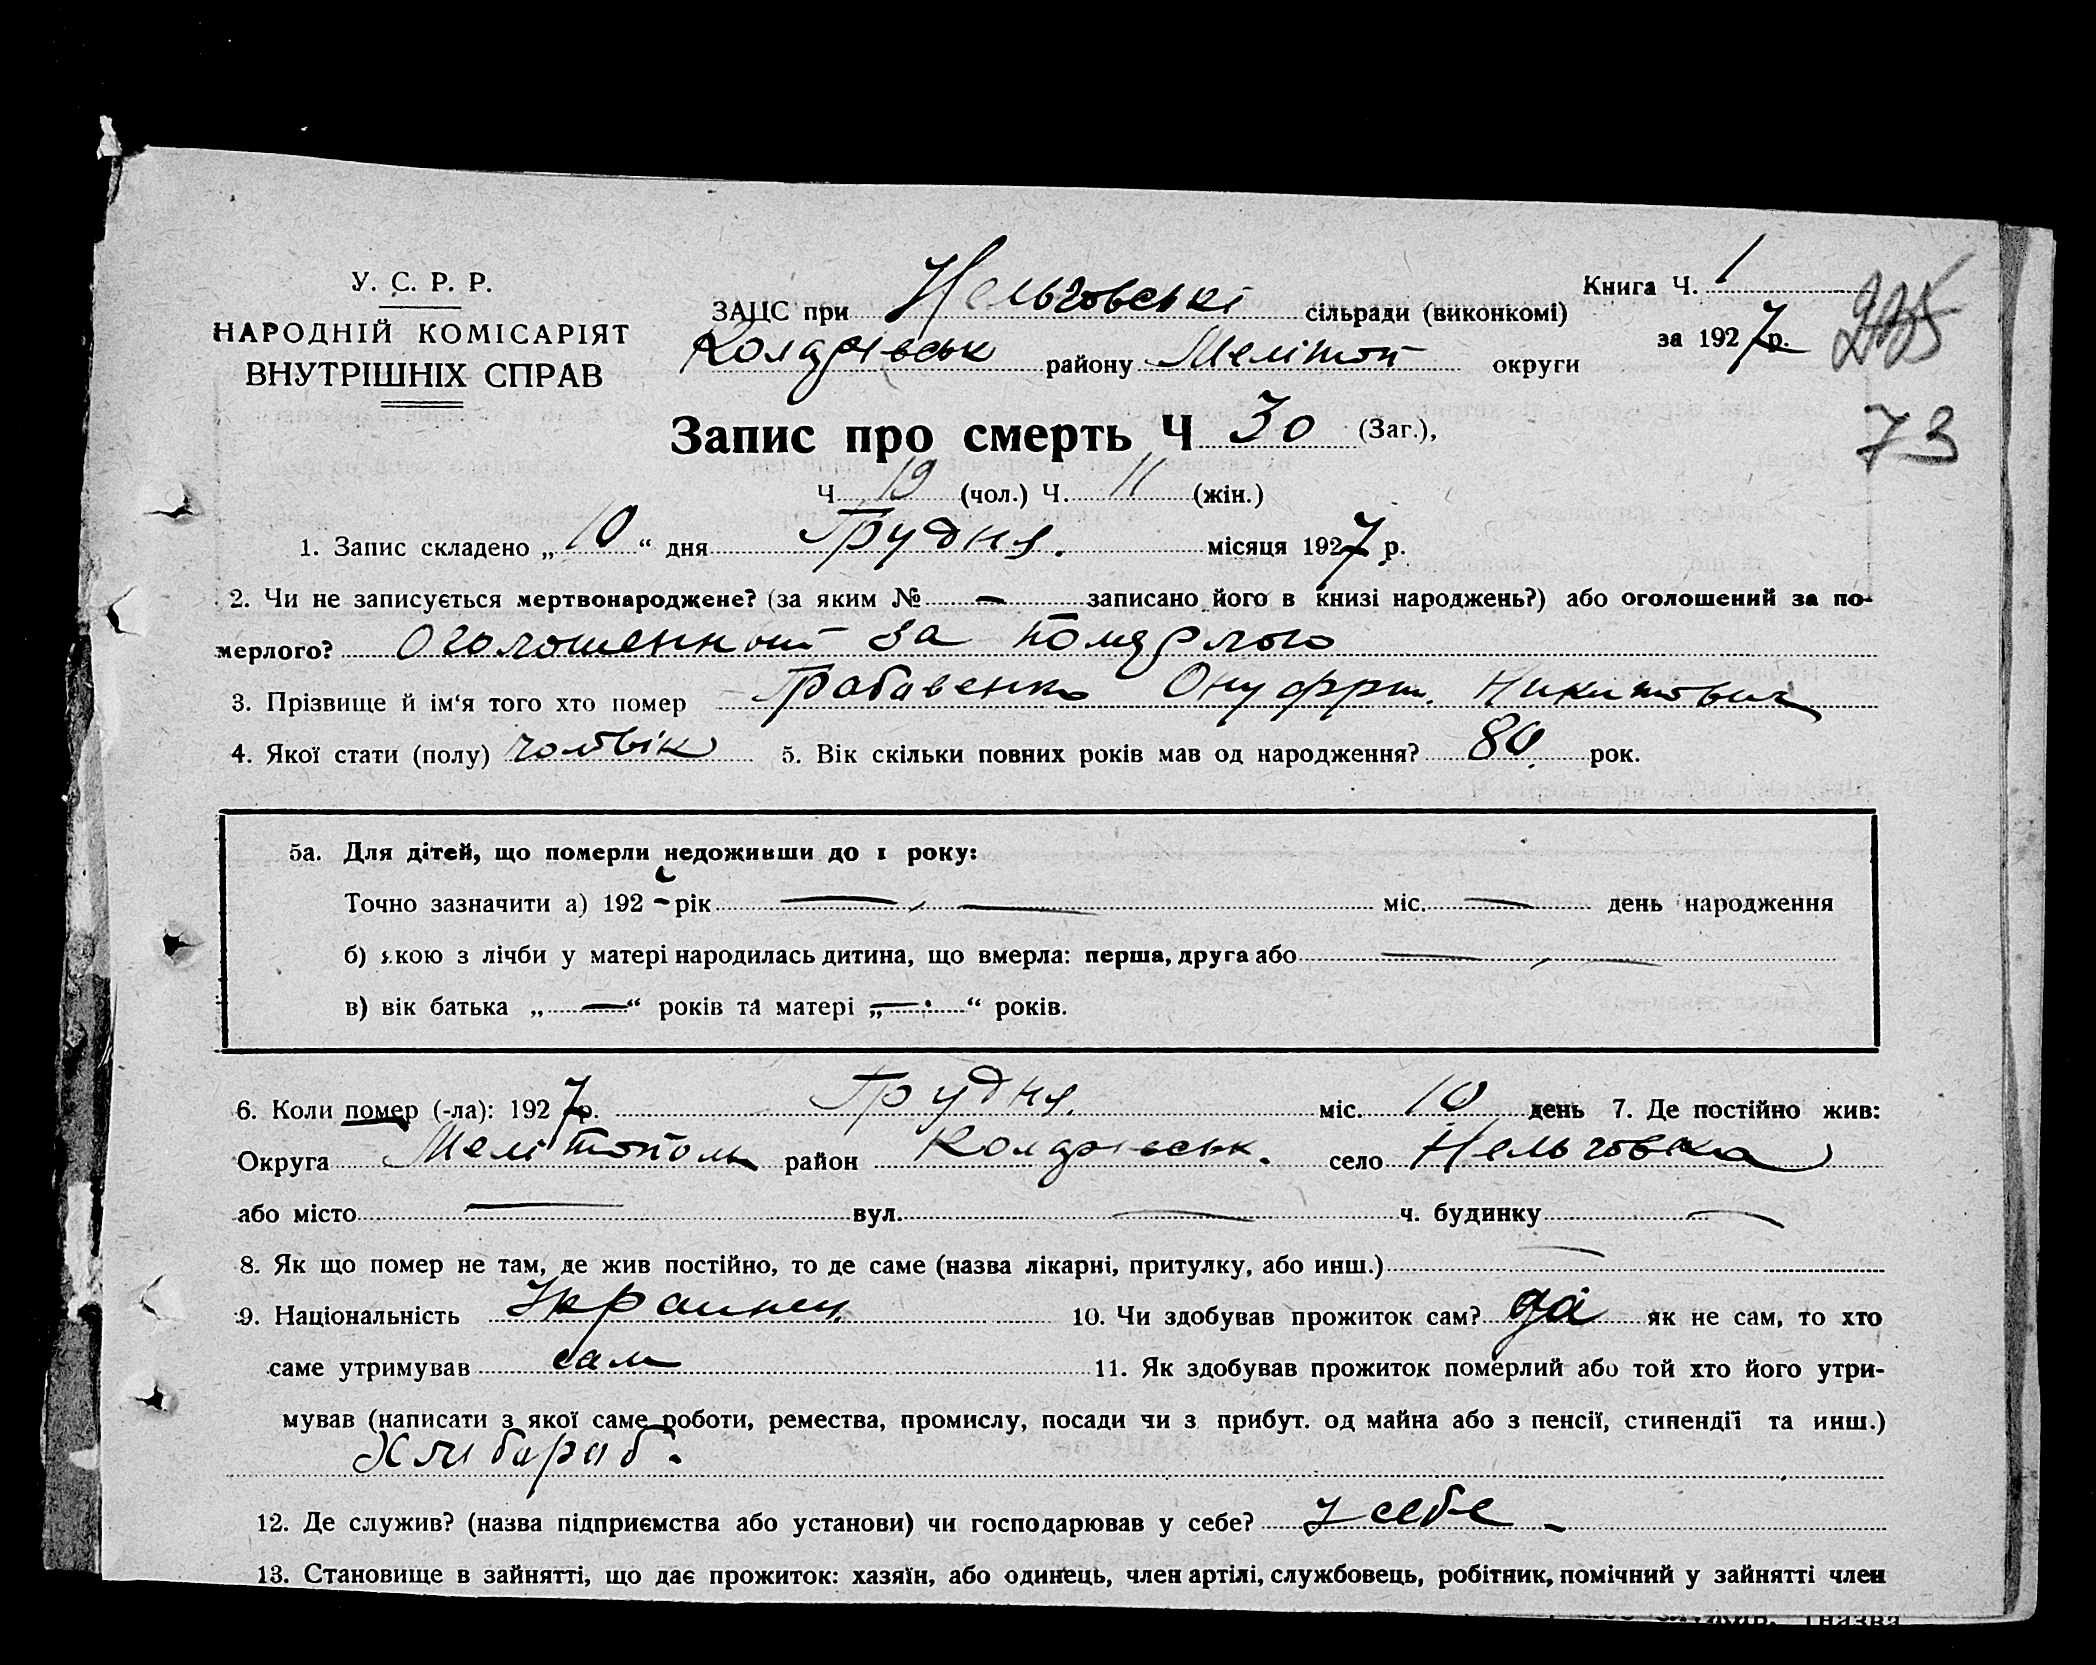 У. С. Р. Р.
НАРОДНІЙ КОМІСАРІЯТ
ВНУТРІШНІХ СПРАВ
Книга Ч. 1
за 1927 р.
73
ЗАЦС при Нельговські сільради (виконкомі)
району Мелітоп округи
Запис про смерть Ч 30 (Заг.),
Ч. 19 (чол.) Ч. 11 (жін.)
1. Запис складено „ 10 “ дня Грудня. місяця 1927 р.
2. Чи не записується мертвонароджене? (за яким № — записано його в книзі народжень?) або оголошений за по-
мерлого? Оголошенний за помэрлого
3. Прізвище й ім'я того хто помер Грабавенко Онуфрій. Никитович
4. Якої стати (полу) чоловік 5. Вік скільки повних років мав од народження? 80 рок.
5а. Для дітей, що померли недоживши до 1 року:
Точно зазначити а) 192 – рік — , — міс. — день народження
б) якою з лічби у матері народилась дитина, що вмерла: перша, друга або — , —
в) вік батька „ — “ років та матері „ — “ років.
6. Коли помер (-ла): 1927 р. Грудня. міс. 10 день 7. Де постійно жив:
Округа Мелітополь район село Нельговка
або місто — вул. — ч. будинку —
8. Як що помер не там, де жив постійно, то де саме (назва лікарні, притулку, або инш.) —
9. Національність Украинец. 10. Чи здобував прожиток сам? да як не сам, то хто
саме утримував сам 11. Як здобував прожиток померлий або той хто його утри-
мував (написати з якої саме роботи, ремества, промислу, посади чи з прибут. од майна або з пенсії, стипендії та инш.)
Хлибараб.
12. Де служив? (назва підприємства або установи) чи господарював у себе? У себе –
13. Становище в зайнятті, що дає прожиток: хазяїн, або одинець, член артілі, службовець, робітник, помічний у зайнятті член
(назва